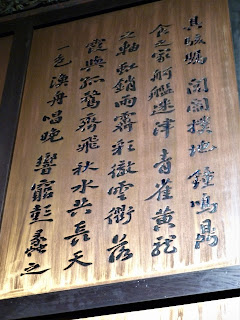 其駭矚閭閻撲地鐘鳴鼎
食之家舸艦迷津青雀黃龍
之軸虹銷雨霽彩徹雲衢落
霞與孤鶩齊飛秋水共長天
一色漁舟唱晚響窮彭蠡之